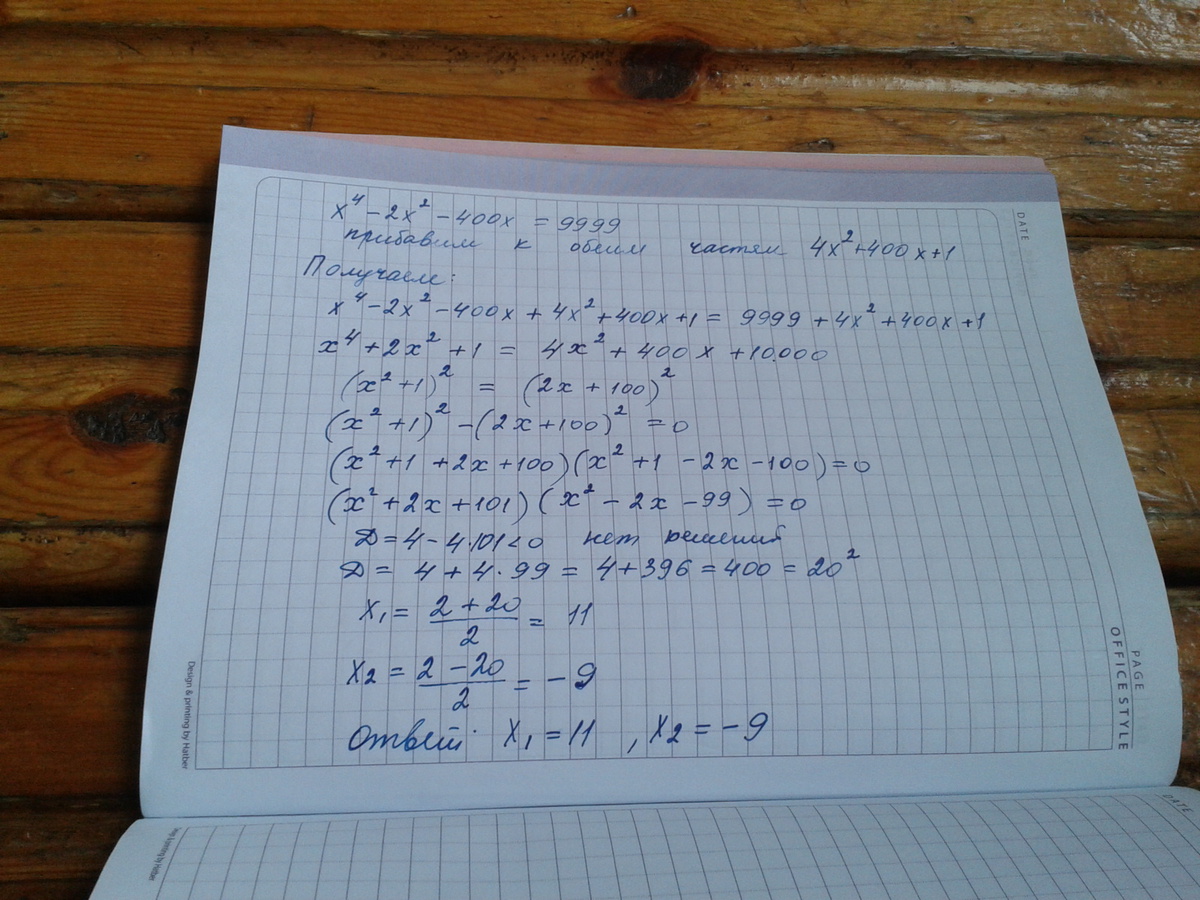 DATE
x⁴ - 2x² - 400x = 9999
прибавим к обеим частям 4x² + 400x + 1
Получаем:
x⁴ - 2x² - 400x + 4x² + 400x + 1 = 9999 + 4x² + 400x + 1
x⁴ + 2x² + 1 = 4x² + 400x + 10.000
(x² + 1)² = (2x + 100)²
(x² + 1)² - (2x + 100)² = 0
(x² + 1 + 2x + 100)(x² + 1 - 2x - 100) = 0
(x² + 2x + 101)(x² - 2x - 99) = 0
D = 4 - 4·101 < 0 нет решений
D = 4 + 4·99 = 4 + 396 = 400 = 20²
x₁ = (2 + 20)/2 = 11
x₂ = (2 - 20)/2 = -9
Ответ: x₁ = 11, x₂ = -9
PAGE
OFFICE STYLE
Design & printing by Hatber
DATE
printing by Hatber